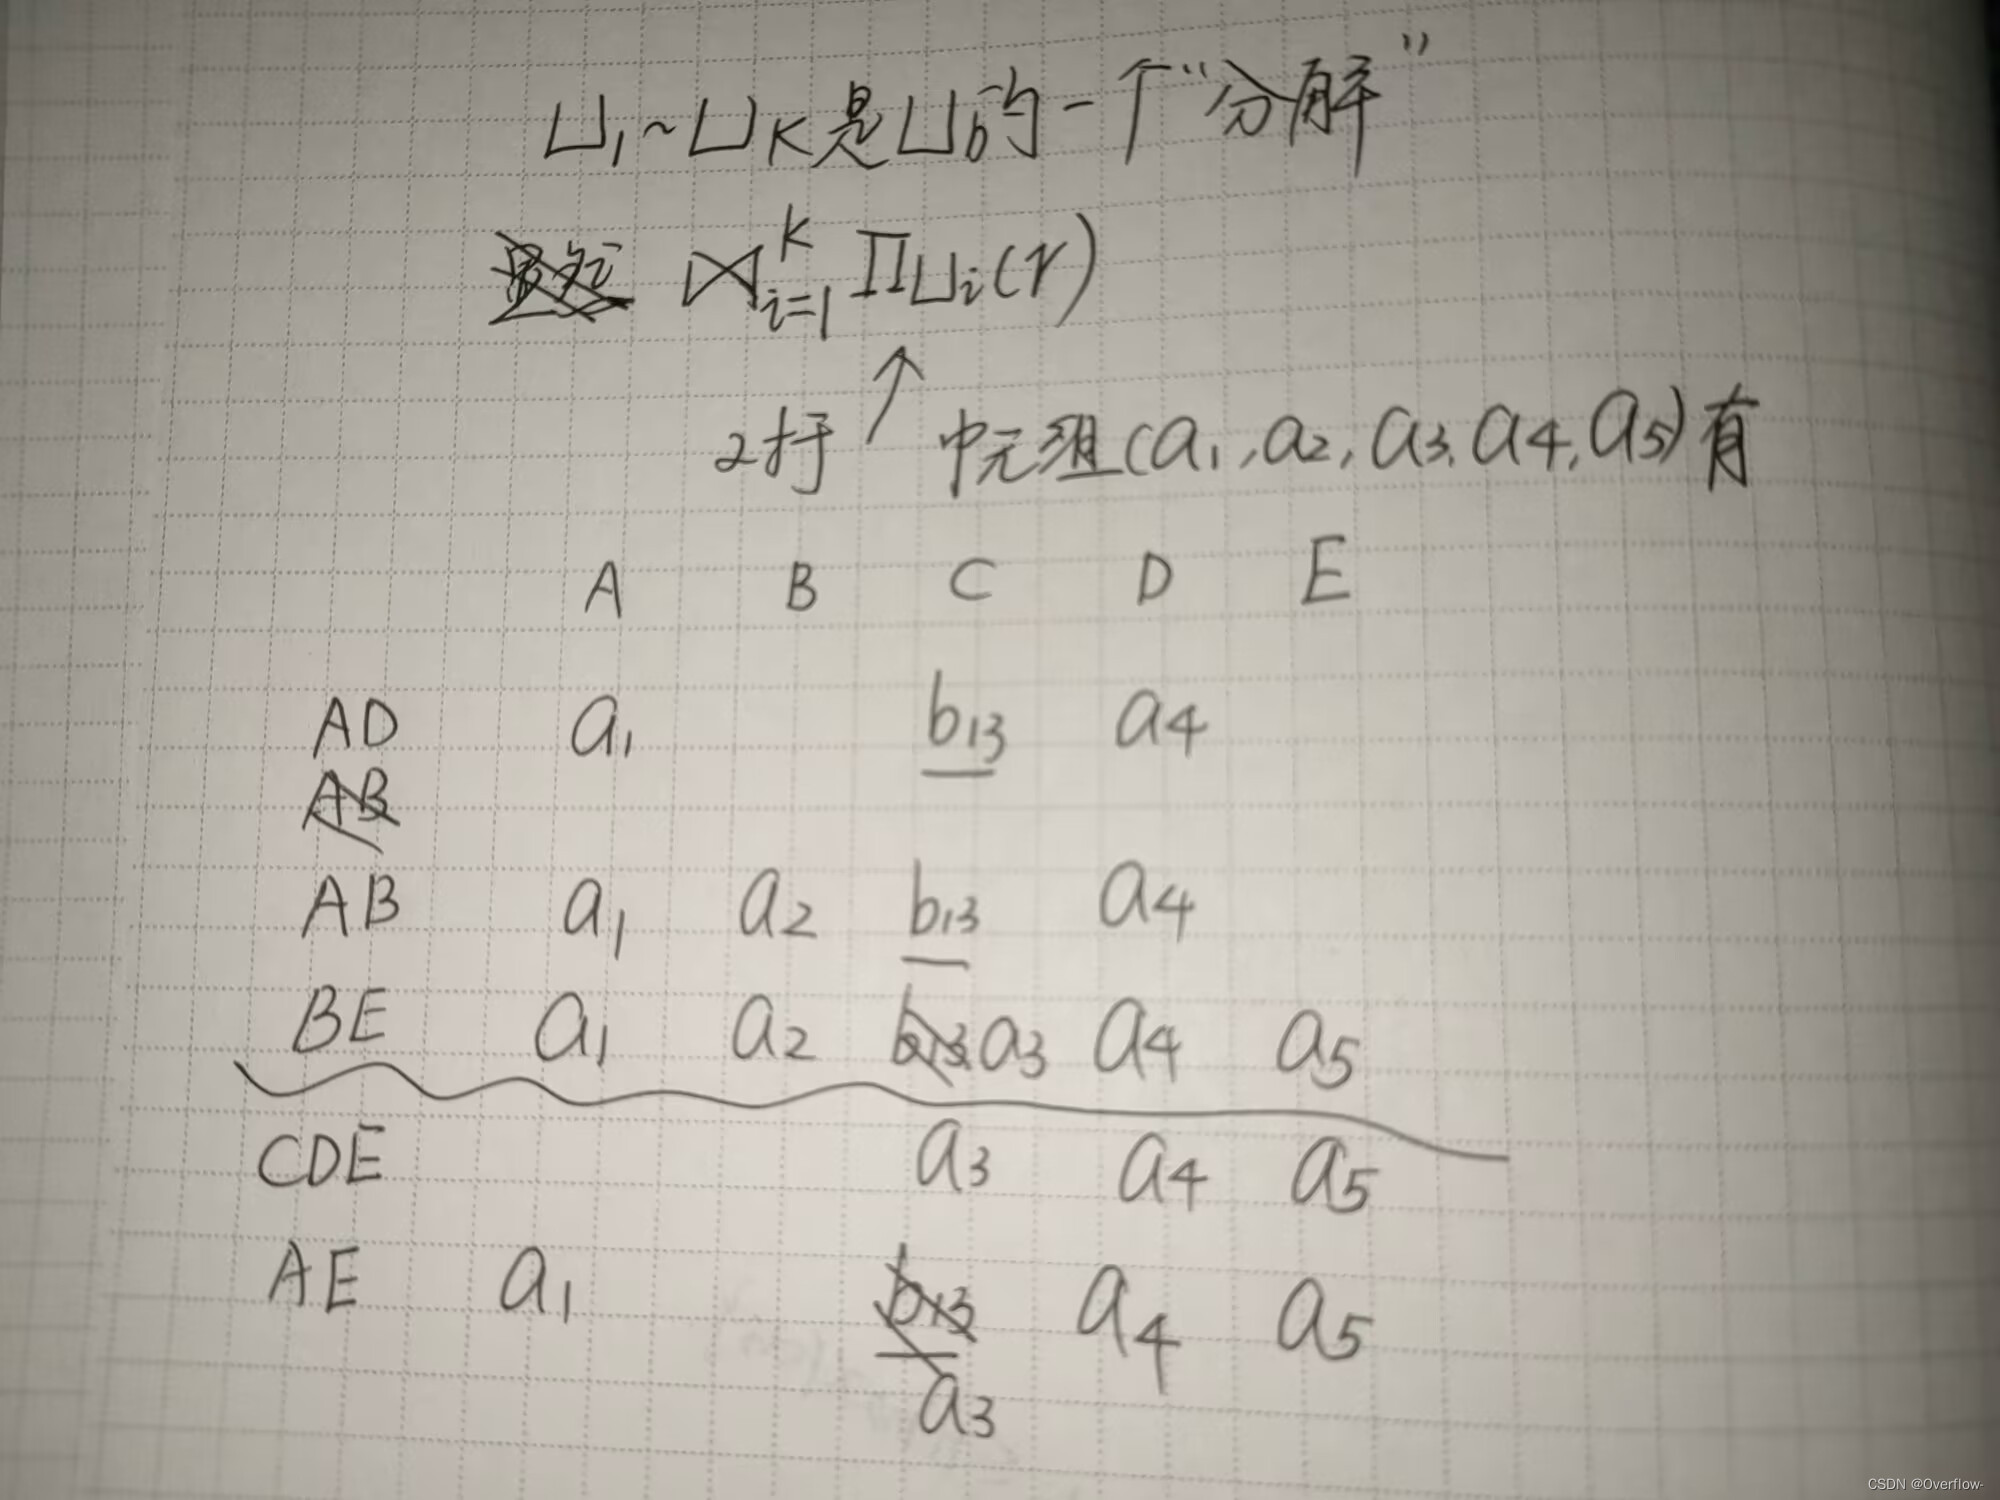 U₁~U_K是U的一个“分解”
⋈ᵢ₌₁ᴷ ΠUᵢ(r)
对于↗中元组(a₁,a₂,a₃,a₄,a₅)有
A B C D E
AD a₁ b₁₃ a₄
AB
AB a₁ a₂ b₁₃ a₄
BE a₁ a₂ b₁₃ a₃ a₄ a₅
CDE a₃ a₄ a₅
AE a₁ b₁₃ a₄ a₅
a₃
CSDN @Overflow-